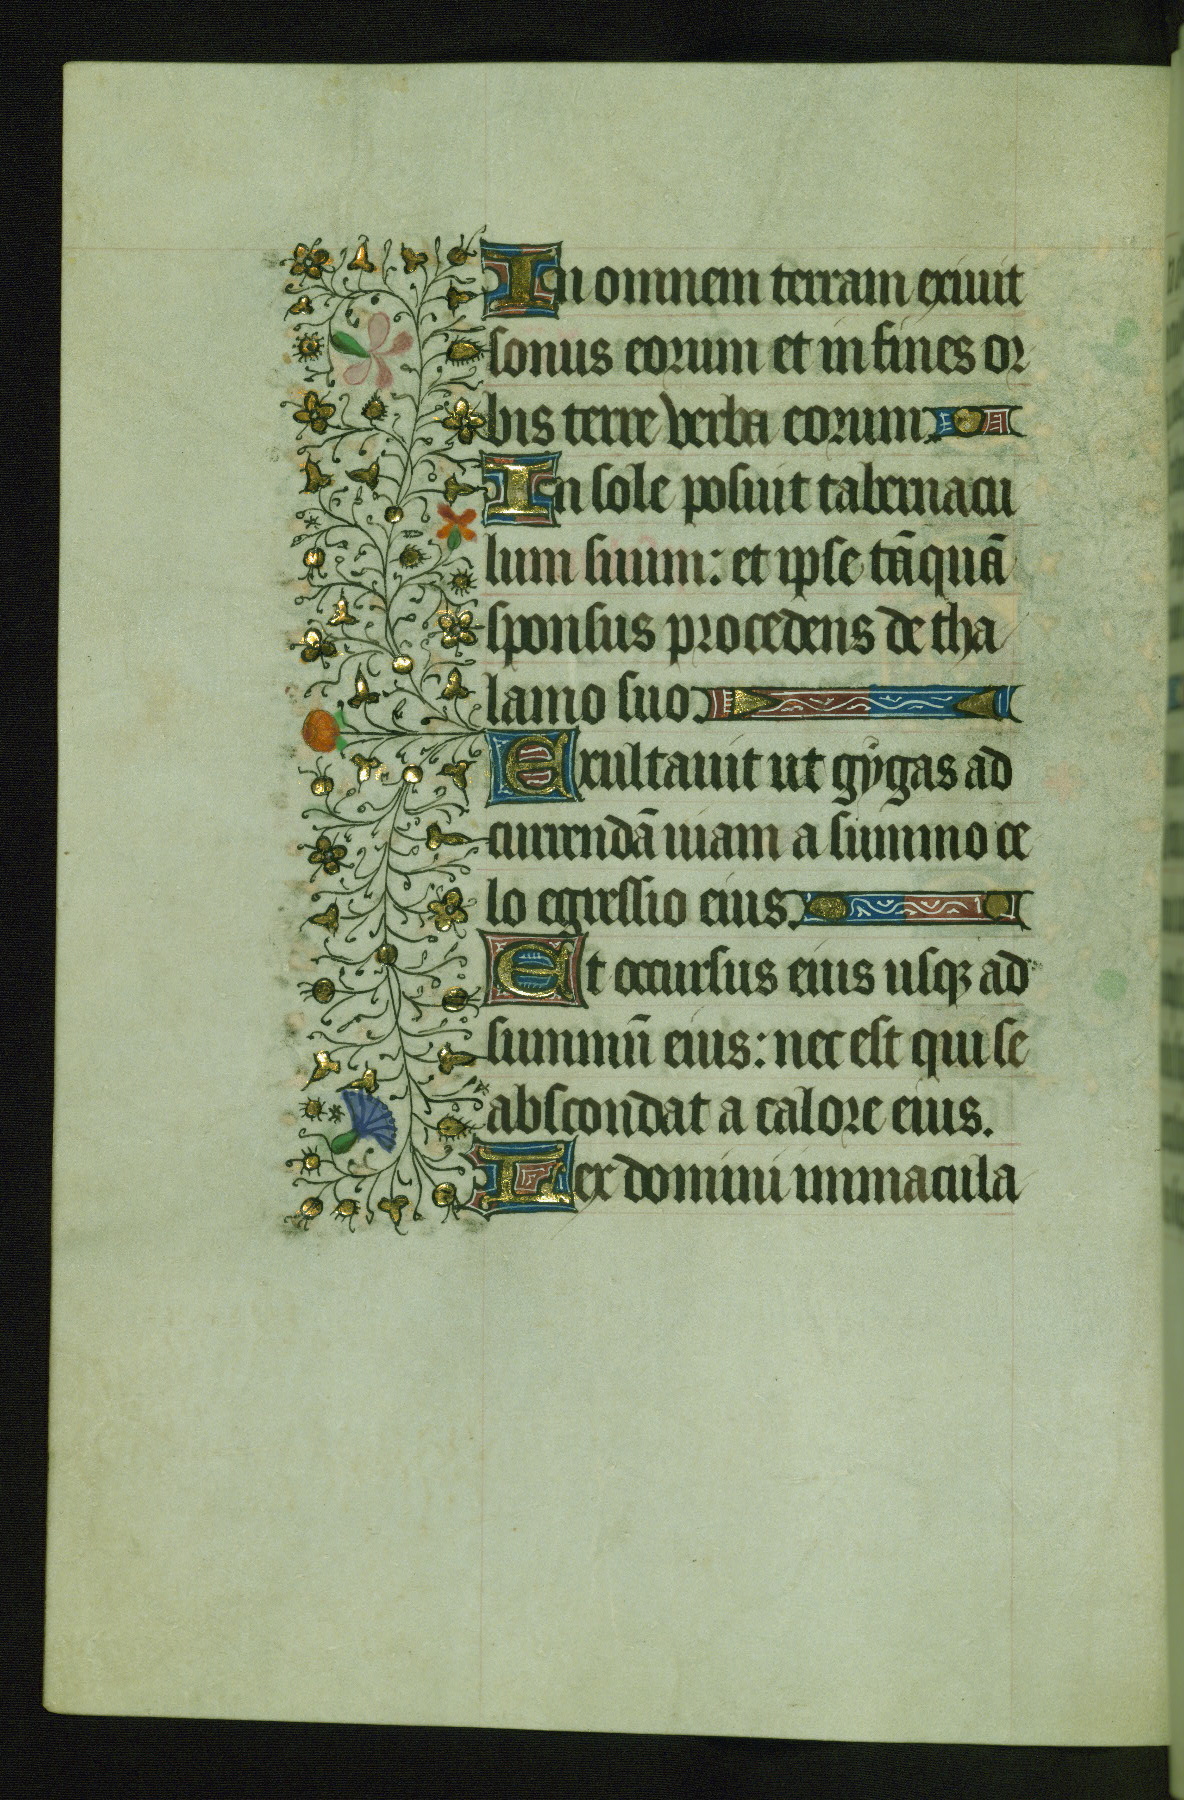 In omnem terram exiuit
sonus eorum et in fines or
bis terre verba eorum.
In sole posuit tabernacu
lum suum: et ipse tãquã
sponsus procedens de tha
lamo suo.
Exultauit ut gẏgas ad
currendã uiam a summo ce
lo egressio eius.
Et occursus eius usqꝫ ad
summũ eius: nec est qui se
abscondat a calore eius.
Lex domini immacula